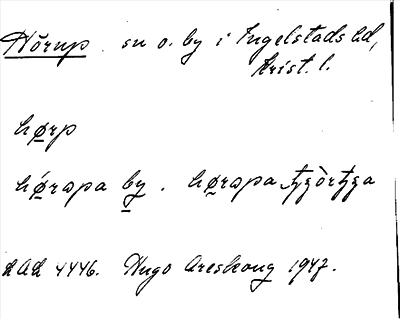 Hörup sn o. by i Ingelstads hd,
Krist. l.
hørp
hørəpa by . hørəpa
LAL 4446. Hugo Areskoug 1947.